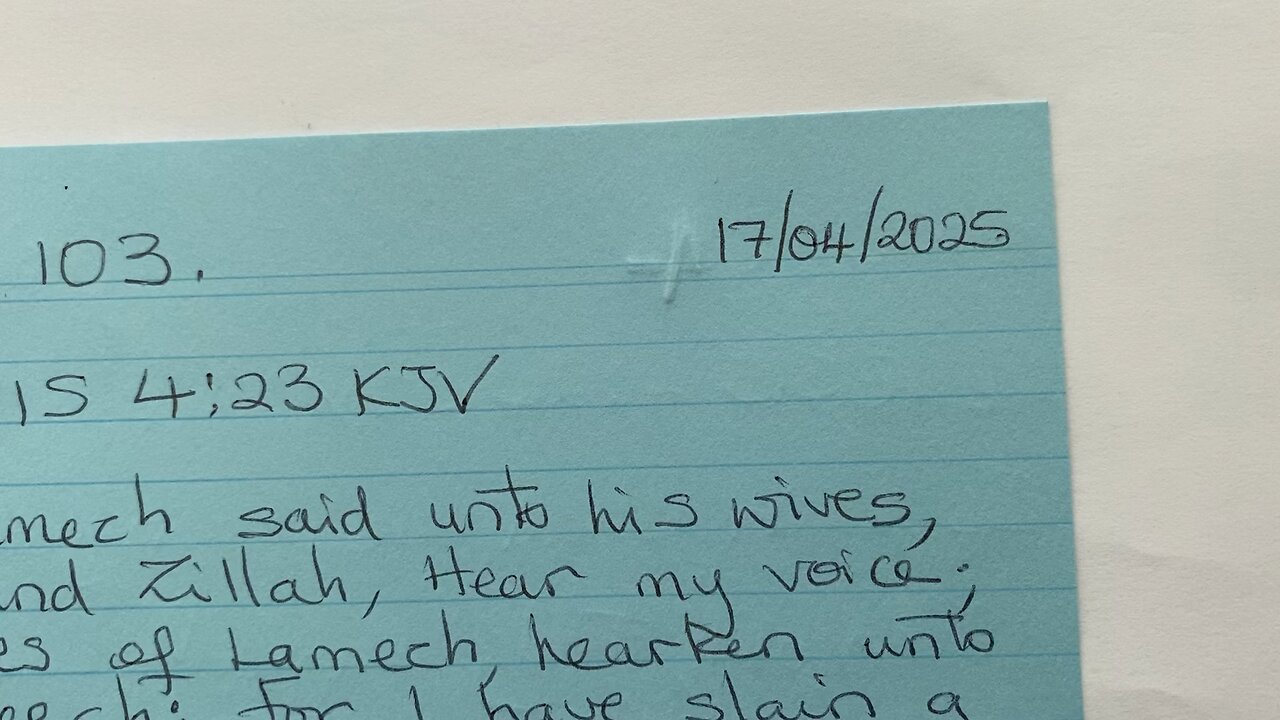 103. 17/04/2025
IS 4:23 KJV
mech said unto his wives,
nd Zillah, Hear my voice;
es of Lamech, hearken unto
eech: for I have slain a